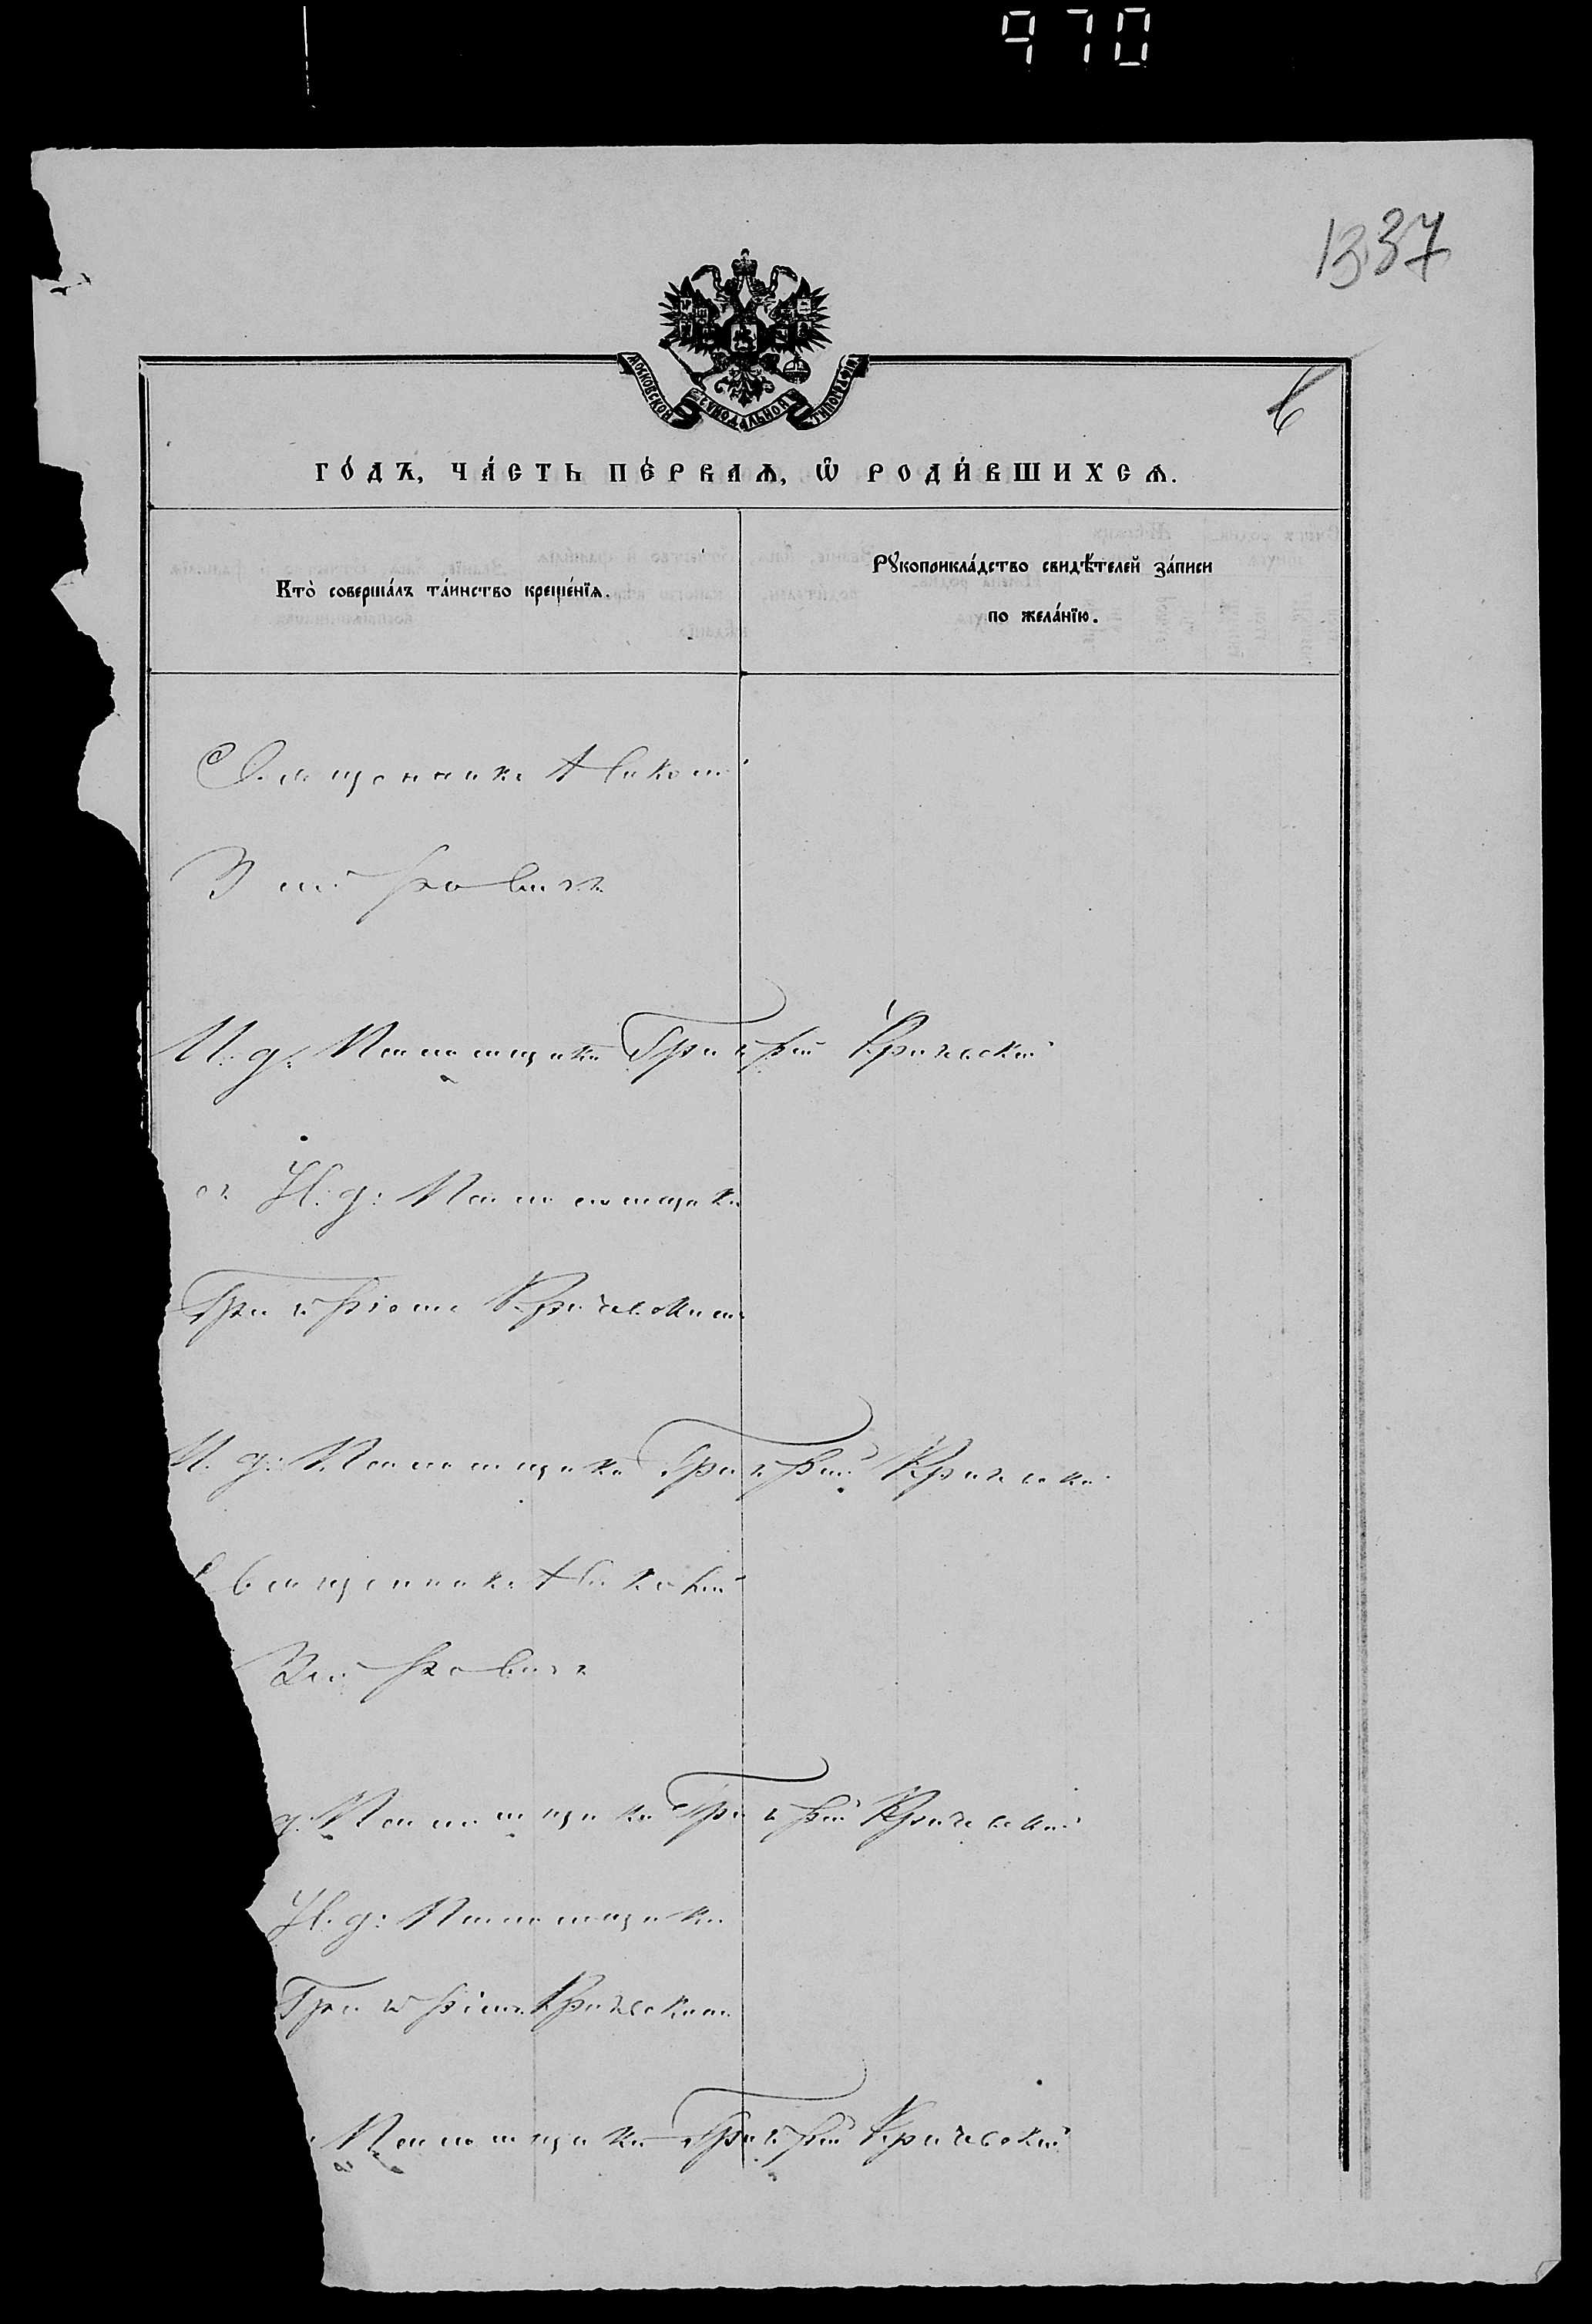 970
1337
МОСКОВСКОЙ СѴНОДАЛЬНОЙ ТИПОГРАФІИ
6
ГО́ДЪ, ЧА́СТЬ ПЕ́РВАѦ, Ѡ҆ РОДИ́ВШИХСѦ.
Кто̀ соверша́лъ та́инство креще́нїѧ.
Рꙋкоприкла́дство свидѣ́телей за́писи
по жела́нїю.
Священникъ
И. д: Псаломщика Григорій Кричевскій
съ И. д: Псаломщика
Григоріемъ Кричевскимъ
И. д: Псаломщика Григорій Кричевскій
Священникъ
д: Псаломщика Григорій Кричевскій
И. д: Псаломщика
Григоріемъ Кричевскимъ
Псаломщика Григорій Кричевскій